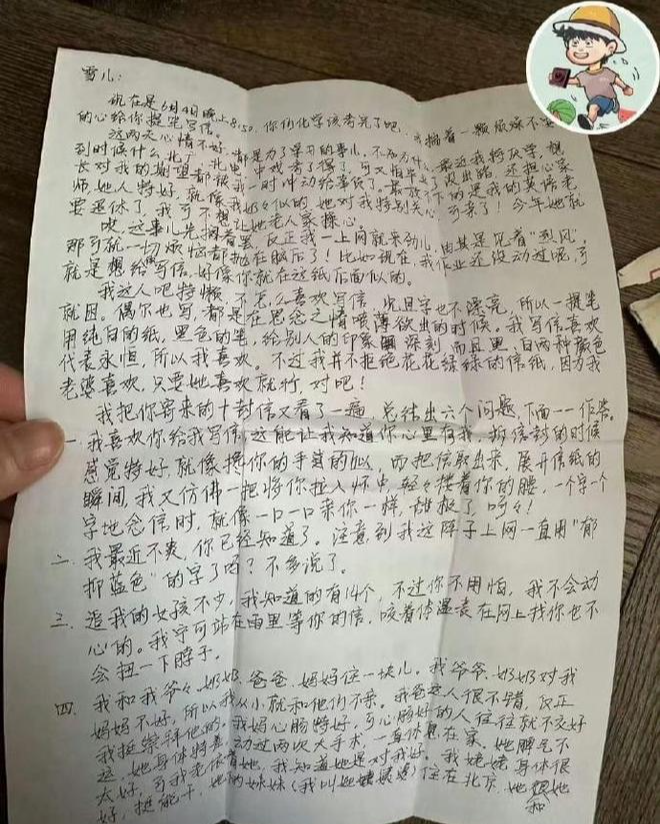 雪儿：
现在是6月4日晚上8:50，你们化学该考完了吧，我揣着一颗烦燥不安
的心给你提笔写信。
这两天心情不好，都是为了学习的事儿，不知为什么，最近我特厌学，想
到时候什么北广、北电、中戏考了得了，可又怕毕了没出路，还担心菜
长对我的期望都被我一时冲动给辜负了。最放不下的是我的英语老
师，她人特好，就像我奶奶似的，她对我特别关心，可亲了！今年她就
要退休了，我可不想让她老人家操心。
哎，这事儿先搁着罢，反正我一上网就来劲儿，尤其是见着“烈风”，
那可就一切烦恼都抛在脑后了！比如说现在，我作业还没动过呢，可
就是想给你写信，好像你就在这纸后面似的。
我这人吧特懒，不怎么喜欢写信，况且字也不漂亮，所以一提笔
就困。偶尔也写，都是在思念之情喷薄欲出的时候。我写信喜欢
用纯白的纸，黑色的笔，给别人的印象深刻，而且黑、白两种颜色
代表永恒，所以我喜欢。不过我并不拒绝花花绿绿的信纸，因为我
老婆喜欢，只要她喜欢就行，对吧！
我把你寄来的十封信又看了一遍，总结出六个问题，下面一一作答。
一、我喜欢你给我写信，这能让我知道你心里有我，拆信封的时候
感觉特好，就像搀你的手过的似，而把信取出来，展开信纸的
瞬间，我又仿佛一把将你拉入怀中，轻轻搂着你的腰，一个字一个
字地念信时，就像一口一口亲你一样，甜极了，呵呵！
二、我最近不爽，你已经知道了。注意到我这阵子上网一直用“郁
抑蓝色”的字了吗？不多说了。
三、追我的女孩不少，我知道的有14个，不过你不用怕，我不会动
心的。我宁可站在雨里等你的信，咬着体温表在网上找你也不
会扭一下脖子。
四、我和我爷爷、奶奶、爸爸、妈妈住一块儿。我爷爷、奶奶对我
妈妈不好，所以我从小就和他们不亲。我爸这人很不错，反正
我挺崇拜他的，我妈心肠特好，可心肠好的人往往就不交好
运，她身体特差，动过两次大手术，一直休息在家。她脾气不
太好，可我老依着她，我知道她是对我好。我姥姥身体很
好，挺能干，她的妹妹（我叫她姨姥姥）住在北京，她跟她
和